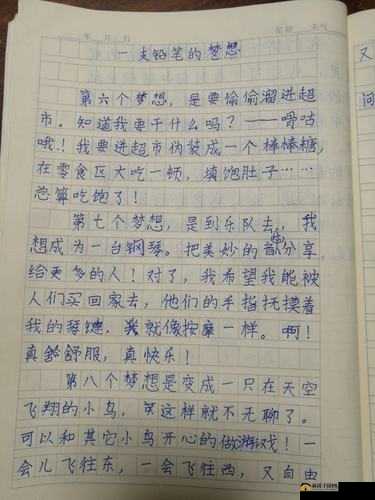 年 月 日
一支铅笔的梦想
第六个梦想，是要偷偷溜进超
市。知道我要干什么吗？——嘻咕
哦！我要进超市伪装成一个棒棒糖，
在零食区大吃一顿，填饱肚子……
总算吃饱了！
第七个梦想，是到乐队去，我
想成为一台钢琴。把美妙的曲分享，
给更多的人！对了，我希望我能被
人们买回家去，他们的手指抚摸着
我的琴键，我就像按摩一样。啊！
真舒服，真快乐！
第八个梦想是变成一只在天空
飞翔的小鸟，这样就不无聊了。
可以和其它小鸟开心的做游戏！一
会儿飞往东，一会飞往西，又自由
又
问